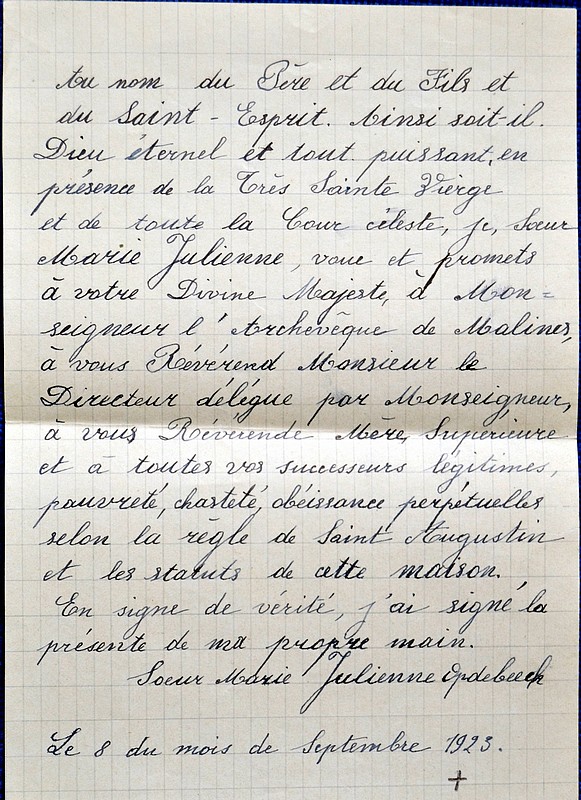 Au nom du Père et du Fils et
du Saint-Esprit. Ainsi soit-il.
Dieu éternel et tout puissant, en
présence de la Très Sainte Vierge
et de toute la Cour céleste, je, Sœur
Marie Julienne, voue et promets
à votre Divine Majesté, à Mon=
seigneur l'Archevêque de Malines,
à vous Révérend Monsieur le
Directeur délégue par Monseigneur,
à vous Révérende Mère, Supérieure
et à toutes vos successeurs légitimes,
pauvreté, chasteté, obéissance perpétuelles
selon la règle de Saint Augustin
et les statuts de cette maison.
En signe de vérité, j'ai signé la
présente de ma propre main.
Soeur Marie Julienne Opdebeeck
Le 8 du mois de Septembre 1923.
+